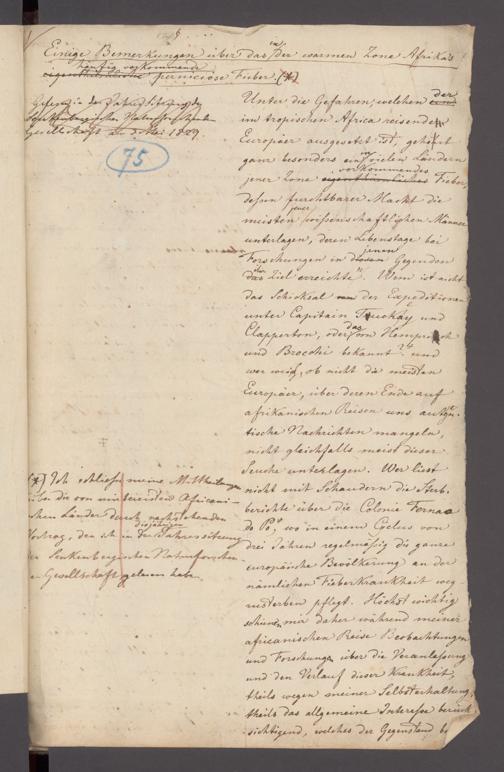 Einige Bemerkungen über das in der warmen Zone Afrika's
häufig vorkommende
eigenthümliche perniciose Fieber. (*)
Gelesen in der Jahressitzung der
Senkenbergischen Naturforschenden
Gesellschaft Mai 1829.
75
Unter die Gefahren, welchen der
im tropischen Africa reisende
Europäer ausgesetzt ist, gehört
ganz besonders ein in vielen Ländern
vorkommendes
jener Zone eigenthümliches Fieber,
dessen furchtbarer Macht die
meisten jener wissenschaftlichen Männer
unterlagen, deren Lebenstage bei
Forschungen in diesen jenen Gegenden
das Ziel erreichte. Wem ist nicht
das Schicksal der Expeditionen
unter Capitain Tuckay und
Clapperton, oder das von Hemprich
und Brocchi bekannt? und
wer weiß, ob nicht die meisten
Europäer, über deren Ende auf
afrikanischen Reisen uns authen-
tische Nachrichten mangeln,
nicht gleichfalls meist dieser
Seuche unterlagen. Wer liest
nicht mit Schaudern die Sterb-
berichte über die Colonie Fernando
do Po, wo in einem Cyclus von
drei Jahren regelmäßig die ganze
europäische Bevölkerung an der
nämlichen Fieberkrankheit weg
zusterben pflegt. Höchst wichtig
schienen mir daher während meiner
africanischen Reise Beobachtungen
und Forschungen über die Veranlassung
und den Verlauf dieser Krankheit,
theils wegen meiner Selbsterhaltung
theils das allgemeine Interesse berück
sichtigend, welches der Gegenstand be
(*) Ich schließe meine Mittheilungen
über die von mir bereisten Africani-
schen Länder durch nachstehenden
Vortrag, den ich in der diesjährigen Jahressitzung
der Senkenbergischen Naturforschen-
den Gesellschaft gelesen habe.